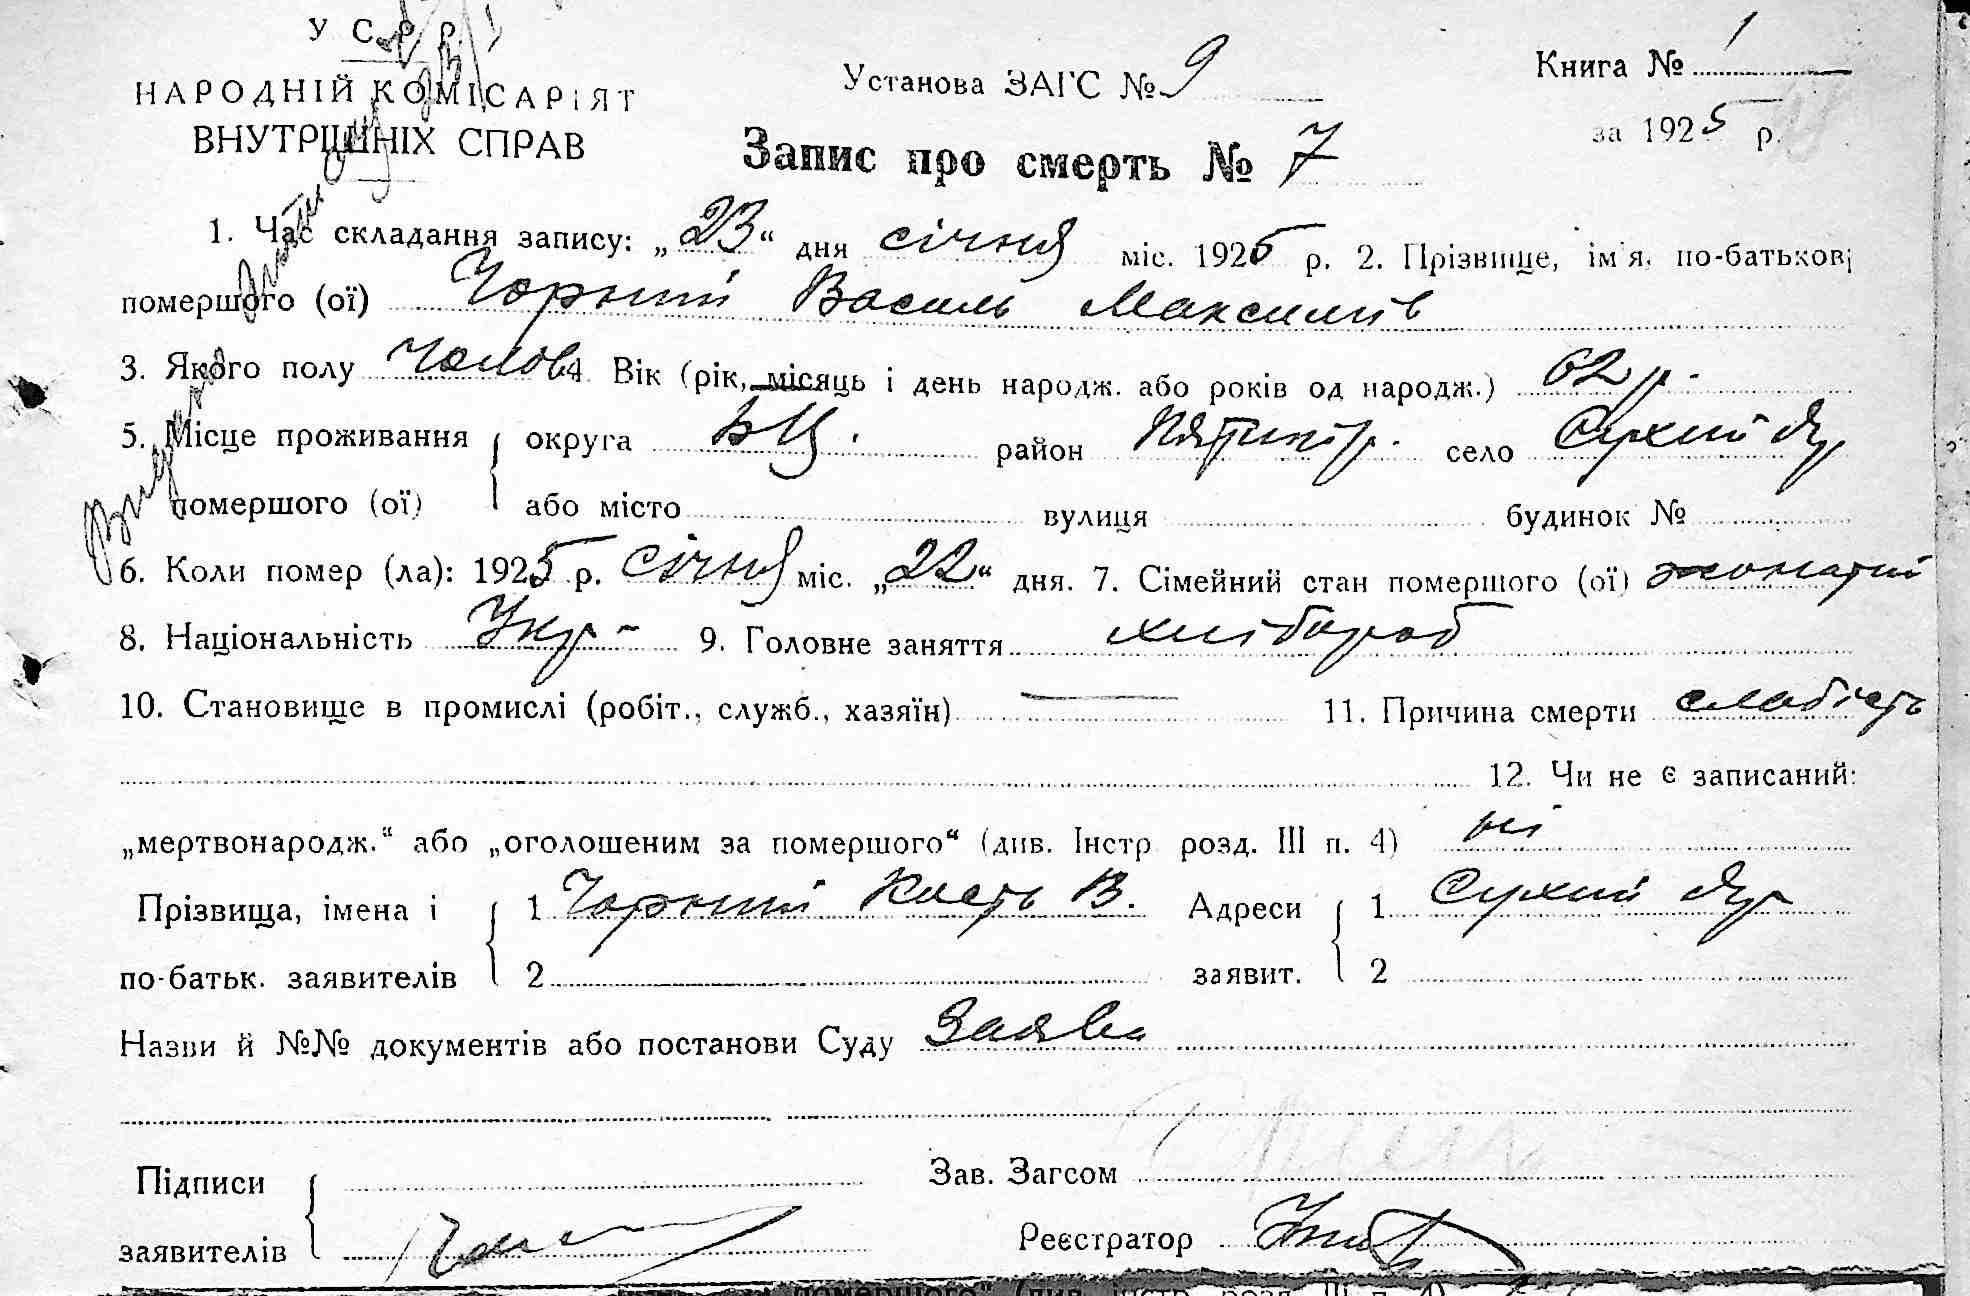 У С.Р.Р.
НАРОДНІЙ КОМІСАРІЯТ
ВНУТРІШНІХ СПРАВ
Установа ЗАГС № 9
Книга № 1
за 1925 р.
Запис про смерть № 7
1. Час складання запису: „23“ дня січня міс. 1925 р. 2. Прізвище, ім'я, по-батькові
помершого (ої) Чорний Василь Максимів
3. Якого полу Чолов 4. Вік (рік, місяць і день народж. або років од народж.) 62 р.
5. Місце проживання { округа БЦ. район Пятигір. село Сухий Яр
помершого (ої) або місто вулиця будинок №
6. Коли помер (ла): 1925 р. січня міс. „22“ дня. 7. Сімейний стан помершого (ої) жонатий
8. Національність Укр- 9. Головне заняття хлібороб
10. Становище в промислі (робіт., служб., хазяїн) — 11. Причина смерти слабість
12. Чи не є записаний:
„мертвонародж.“ або „оголошеним за помершого“ (див. Інстр розд. III п. 4) ні
Прізвища, імена і { 1 Чорний Кость В. Адреси { 1 Сухий Яр
по-батьк. заявителів 2 заявит. 2
Назви й №№ документів або постанови Суду Заява
Підписи { Зав. Загсом
заявителів Реєстратор
помершого“ (див. інстр. розд. III п. 4)